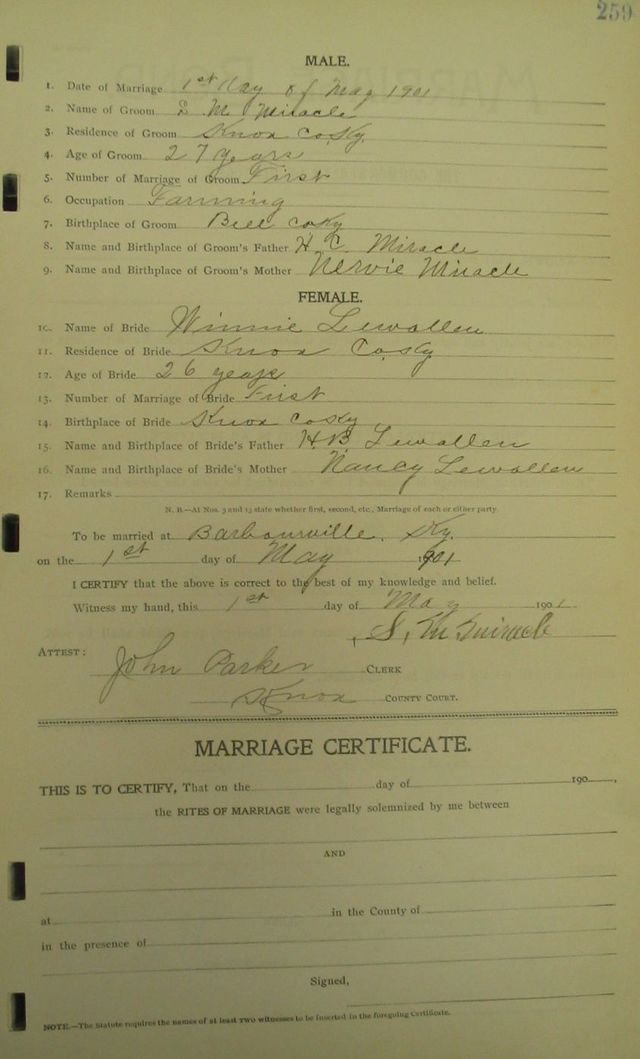 259
MALE.
1. Date of Marriage 1st Day of May 1901
2. Name of Groom S M Miracle
3. Residence of Groom Knox Co Ky.
4. Age of Groom 27 years
5. Number of Marriage of Groom First
6. Occupation Farming
7. Birthplace of Groom Bell Co Ky
8. Name and Birthplace of Groom's Father H. C. Miracle
9. Name and Birthplace of Groom's Mother Nervie Miracle
FEMALE.
10. Name of Bride Winnie Lewallen
11. Residence of Bride Knox Co. Ky
12. Age of Bride 26 years
13. Number of Marriage of Bride First
14. Birthplace of Bride Knox Co Ky
15. Name and Birthplace of Bride's Father H.B. Lewallen
16. Name and Birthplace of Bride's Mother Nancy Lewallen
17. Remarks
N. B.—At Nos. 5 and 13 state whether first, second, etc., Marriage of each or either party.
To be married at Barbourville, Ky.
on the 1st day of May 1901
I CERTIFY that the above is correct to the best of my knowledge and belief.
Witness my hand, this 1st day of May 1901
S. M Miracle
ATTEST:
John Parker CLERK
Knox COUNTY COURT.
MARRIAGE CERTIFICATE.
THIS IS TO CERTIFY, That on the day of 190 ,
the RITES OF MARRIAGE were legally solemnized by me between
AND
at in the County of
in the presence of
Signed,
NOTE.—The Statute requires the names of at least two witnesses to be inserted in the foregoing Certificate.